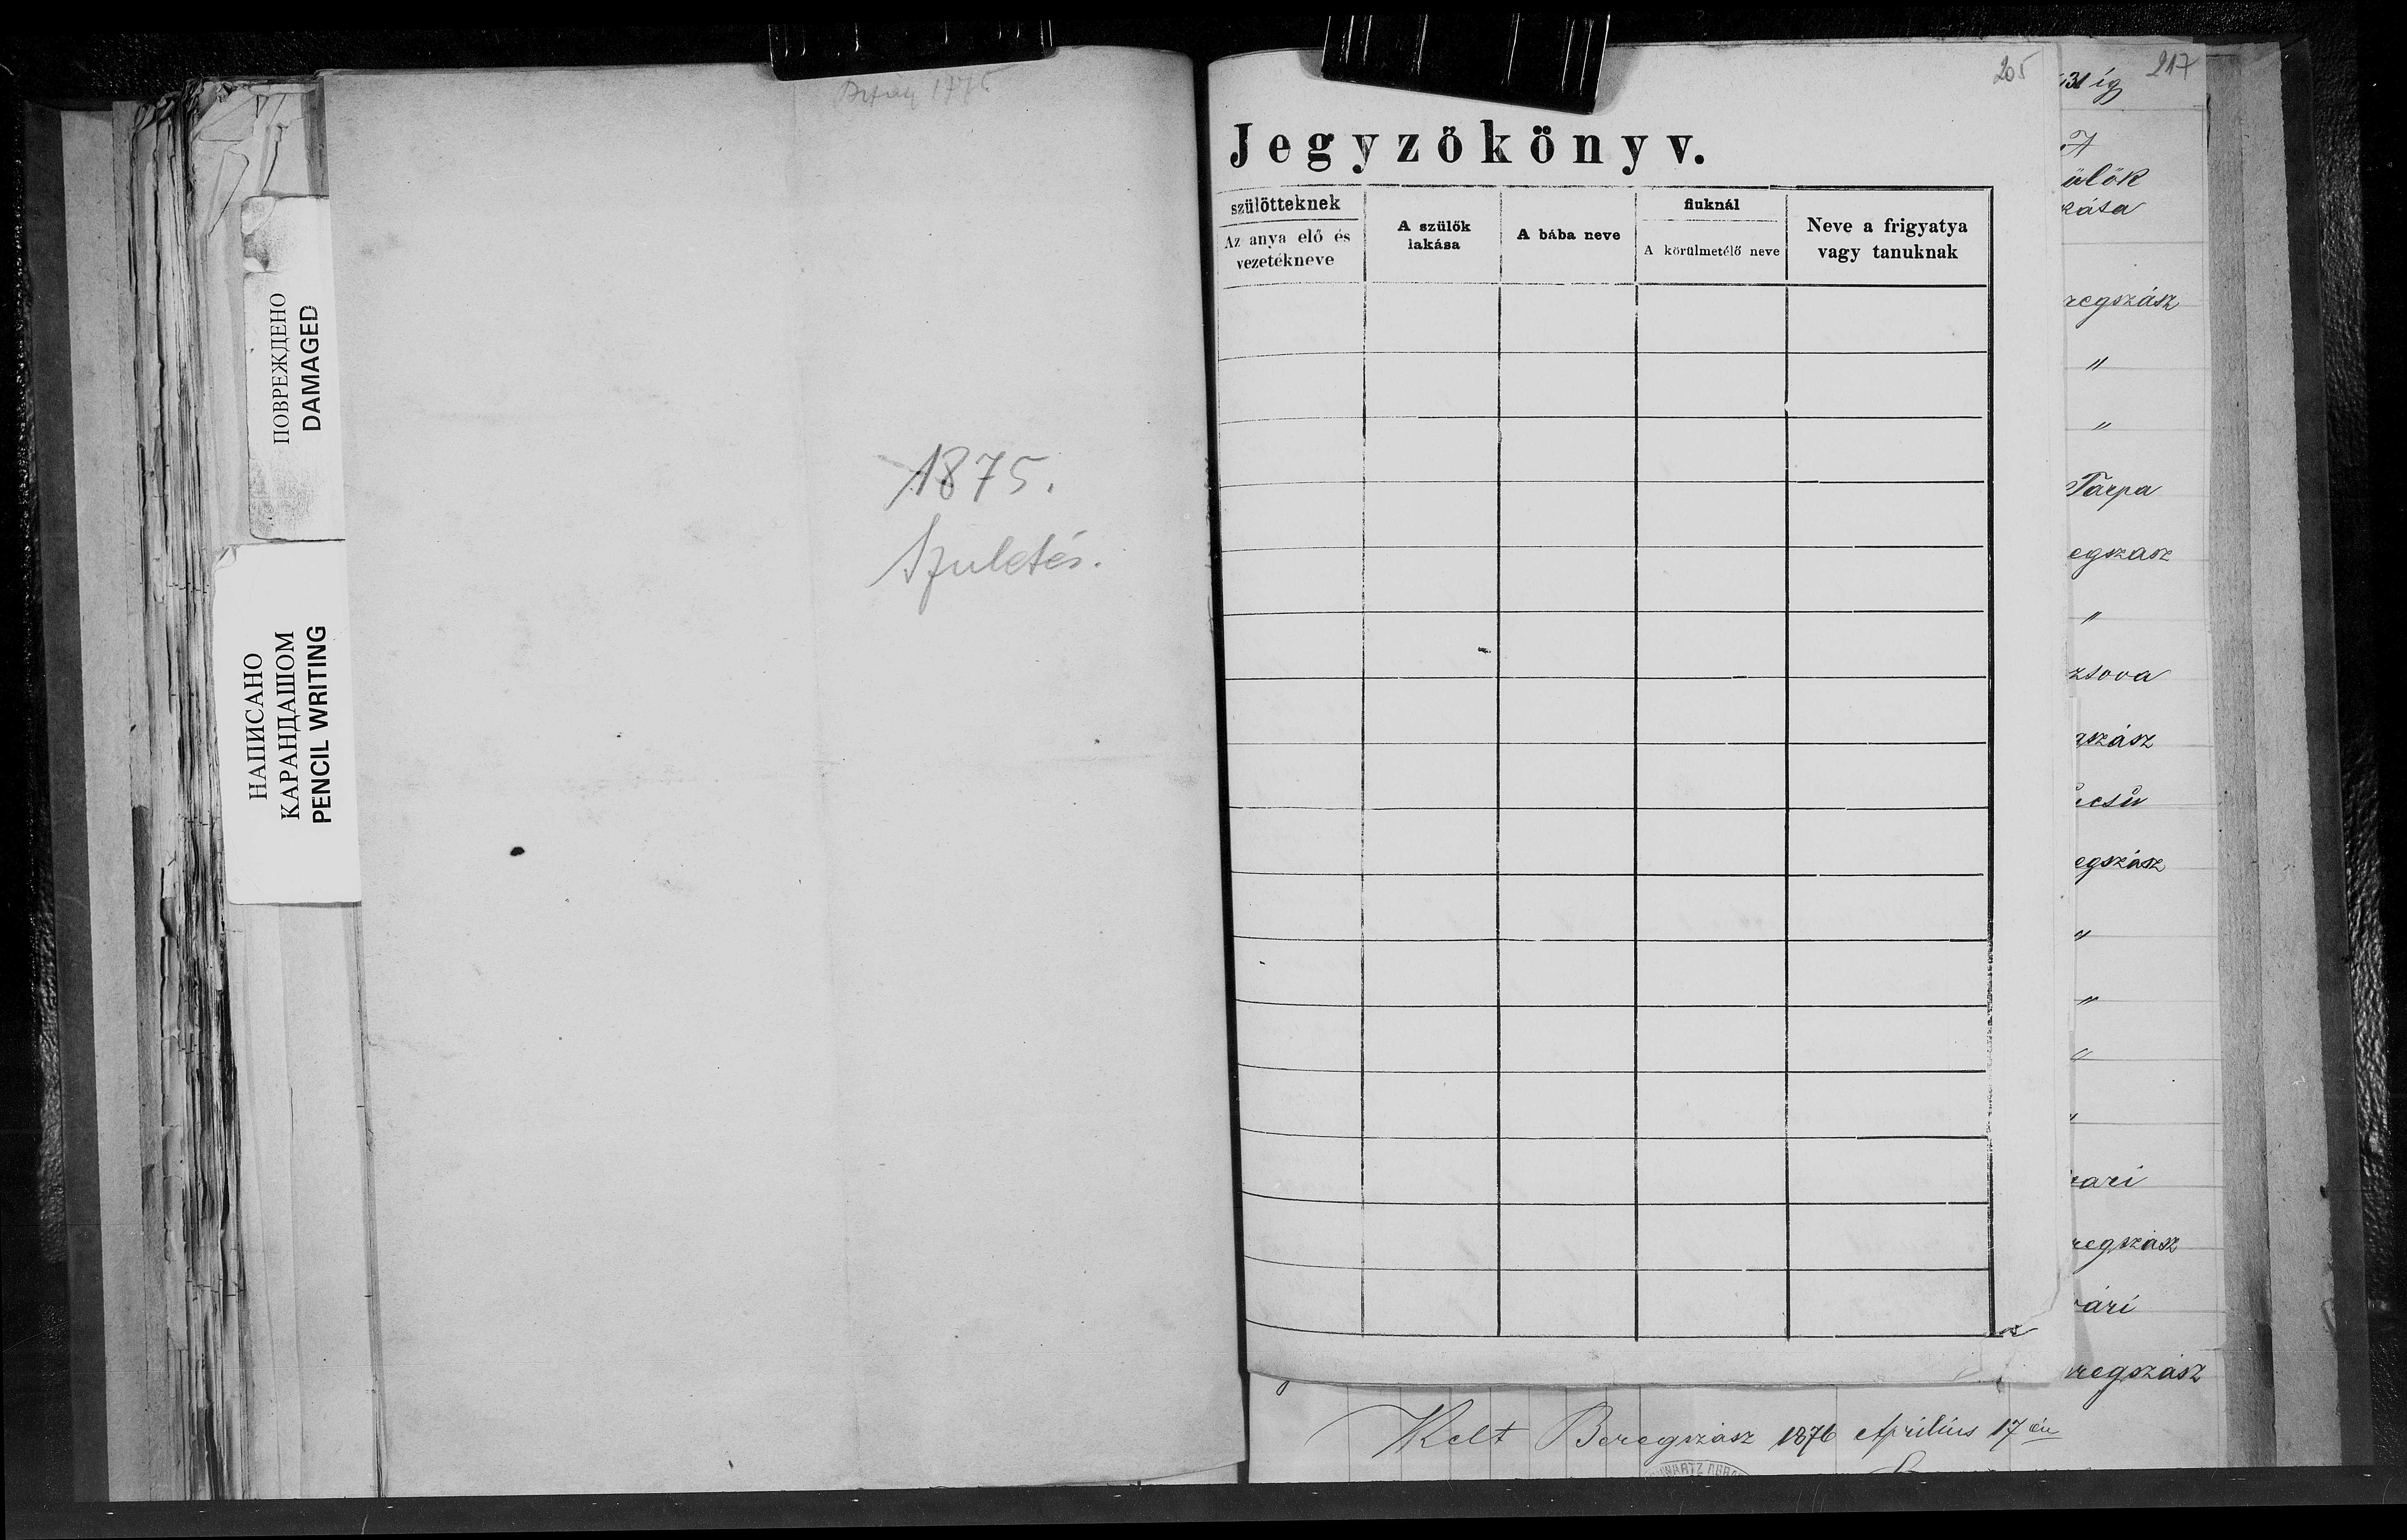 ПОВРЕЖДЕНО
DAMAGED
НАПИСАНО
КАРАНДАШОМ
PENCIL WRITING
1875
1875.
Születés.
205
Jegyzőkönyv.
szülötteknek
Az anya elő és
vezetékneve
A szülők
lakása
A bába neve
fiuknál
A körülmetélő neve
Neve a frigyatya
vagy tanuknak
217
31 ig
A
ülők
kása
regszász
"
"
Tarpa
egszasz
"
zsova
gszász
ucsu
egszász
"
"
"
"
vari
regszász
vári
regszász
Kelt Beregszász 1876 Április 17 én